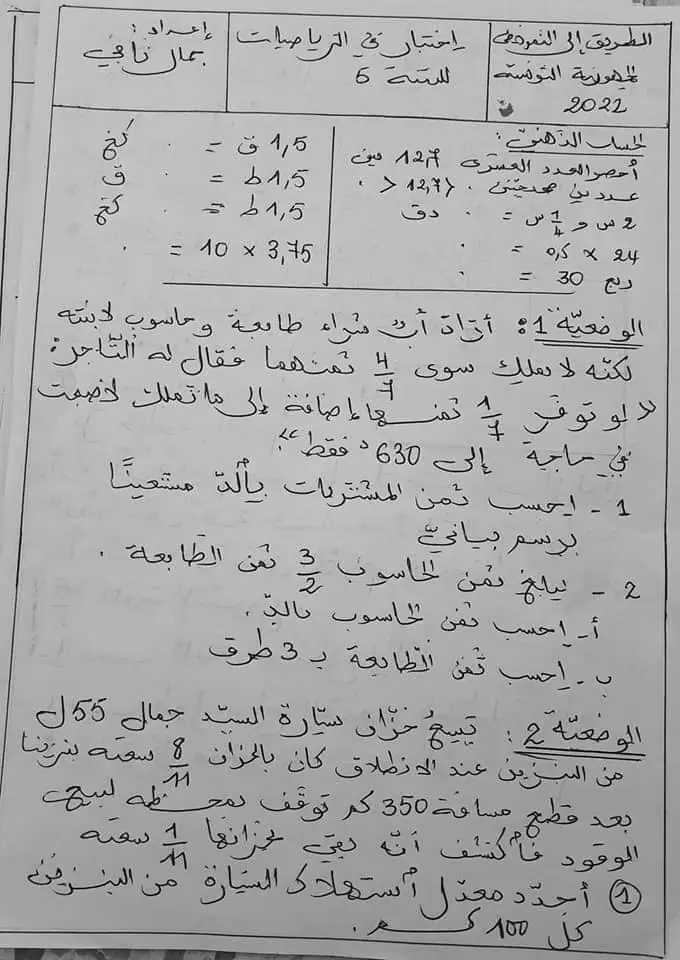 الطريق إلى النموذجي
الجمهورية التونسية
2022
إختبار في الرياضيات
للسنة 6
إعداد:
جمال نافي
الحساب الذهني:
أحصر العدد العشري 12,7 بين
عددين صحيحين. < 12,7 < .
2 س و 1/4 س = . دق
24 × 0,5 = .
ربع 30 = .
1,5 ق = . كغ
1,5 ط = . ق
1,5 ط = . كغ
3,75 × 10 = .
الوضعيّة 1: أراد أب شراء طابعة وحاسوب لابنته
لكنّه لا يملك سوى 4/7 ثمنهما فقال له التّاجر:
« لو توفّر 1/7 ثمنها إضافة إلى ما تملك لأصبحت
في حاجة إلى 630د فقط».
1 - احسب ثمن المشتريات بالدّ مستعينًا
برسم بيانيّ
2 - يبلغ ثمن الحاسوب 3/2 ثمن الطّابعة.
أ- إحسب ثمن الحاسوب بالدّ.
ب- إحسب ثمن الطّابعة بـ 3 طرق
الوضعيّة 2: تسعُ خزّان سيّارة السيّد جمال 55ل
من البنزين عند الانطلاق كان بالخزان 8/11 سعته بنزينا
بعد قطع مسافة 350 كم توقّف بمحطّة لبيع
الوقود فاكتشف أنّه بقي بخزانها 1/11 سعته
① أحدّد معدّل استهلاك السّيّارة من البنزين
كلّ 100 كم.